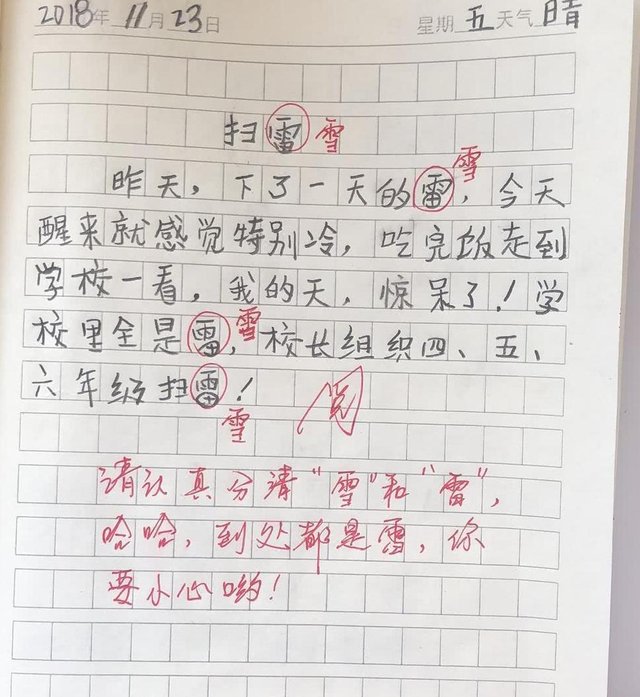 2018年11月23日 星期五天气晴
扫雷雪
雪
昨天，下了一天的雷，今天
醒来就感觉特别冷，吃完饭走到
学校一看，我的天，惊呆了！学
校里全是雷，雪校长组织四、五、
六年级扫雷！
雪 阅
请认真分清“雪”和“雷”，
哈哈，到处都是雷，你
要小心哟！